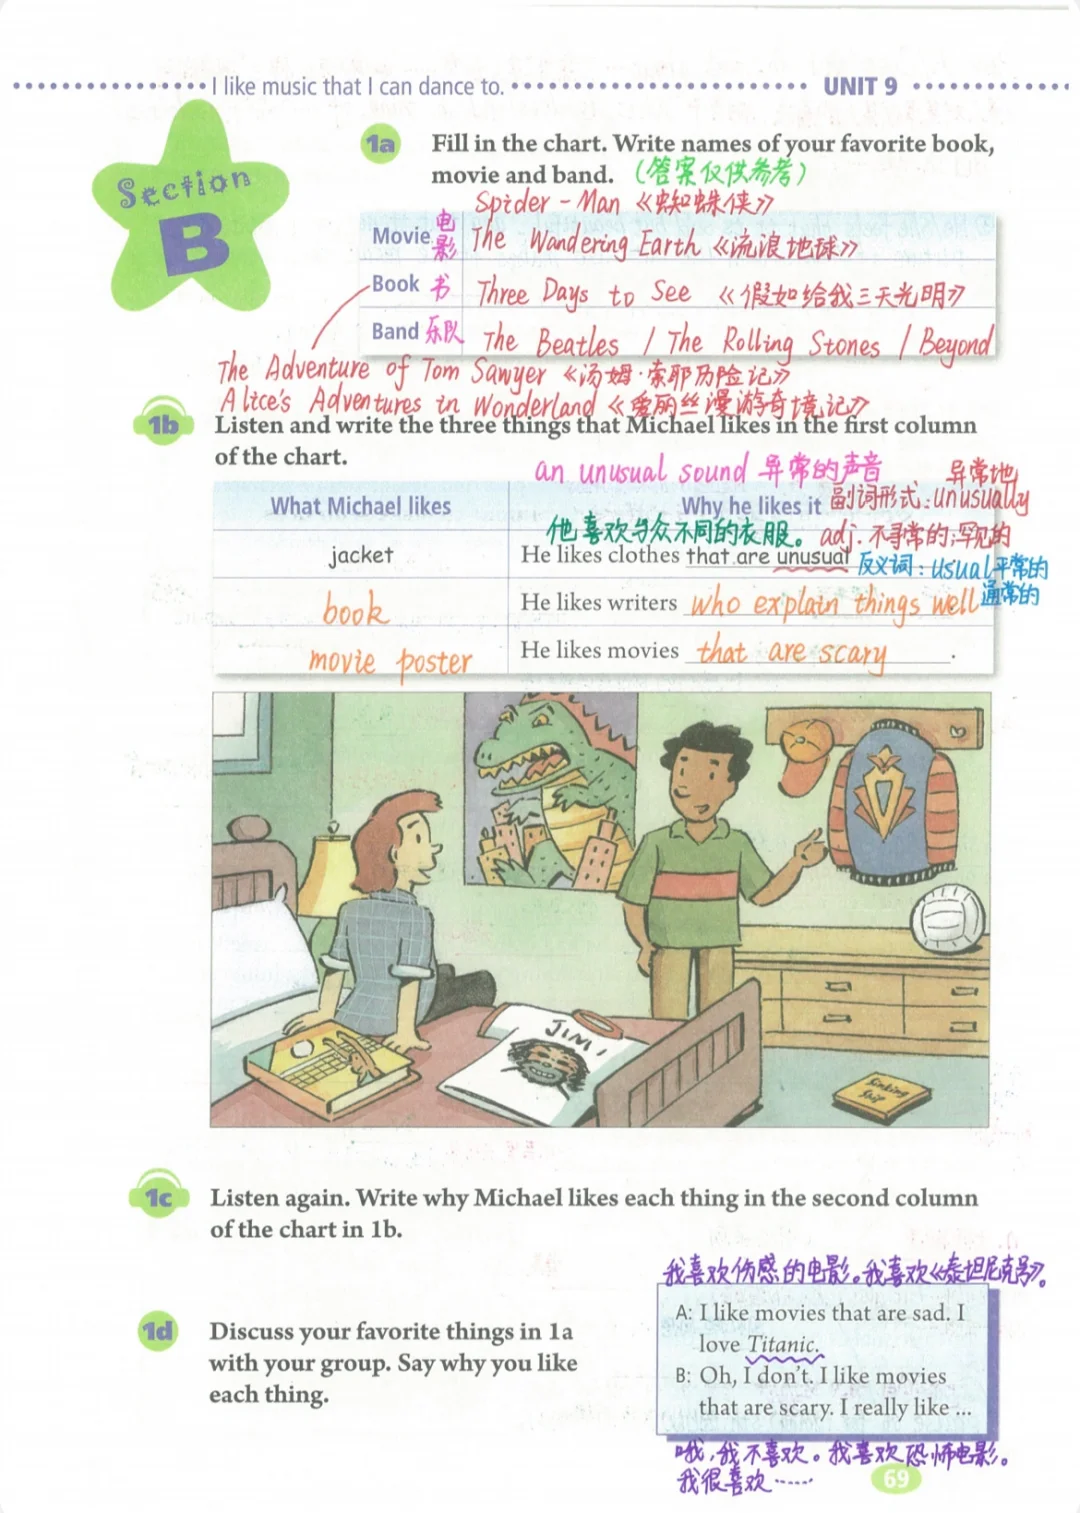 I like music that I can dance to.
UNIT 9
Section
B
1a
Fill in the chart. Write names of your favorite book,
movie and band. (答案仅供参考)
Spider-Man 《蜘蛛侠》
Movie 电影 The Wandering Earth 《流浪地球》
Book 书 Three Days to See 《假如给我三天光明》
Band 乐队 The Beatles / The Rolling Stones / Beyond
The Adventure of Tom Sawyer 《汤姆·索耶历险记》
Alice's Adventures in Wonderland 《爱丽丝漫游奇境记》
1b
Listen and write the three things that Michael likes in the first column
of the chart.
an unusual sound 异常的声音
异常地
What Michael likes
Why he likes it
副词形式:unusually
他喜欢与众不同的衣服。
adj. 不寻常的;罕见的
jacket
He likes clothes that are unusual
反义词:usual平常的
通常的
book
He likes writers who explain things well
movie poster
He likes movies that are scary.
JIMI
Sinking
Ship
1c
Listen again. Write why Michael likes each thing in the second column
of the chart in 1b.
1d
Discuss your favorite things in 1a
with your group. Say why you like
each thing.
我喜欢伤感的电影。我喜欢《泰坦尼克号》。
A: I like movies that are sad. I
love Titanic.
B: Oh, I don't. I like movies
that are scary. I really like ...
哦,我不喜欢。我喜欢恐怖电影。
我很喜欢……
69